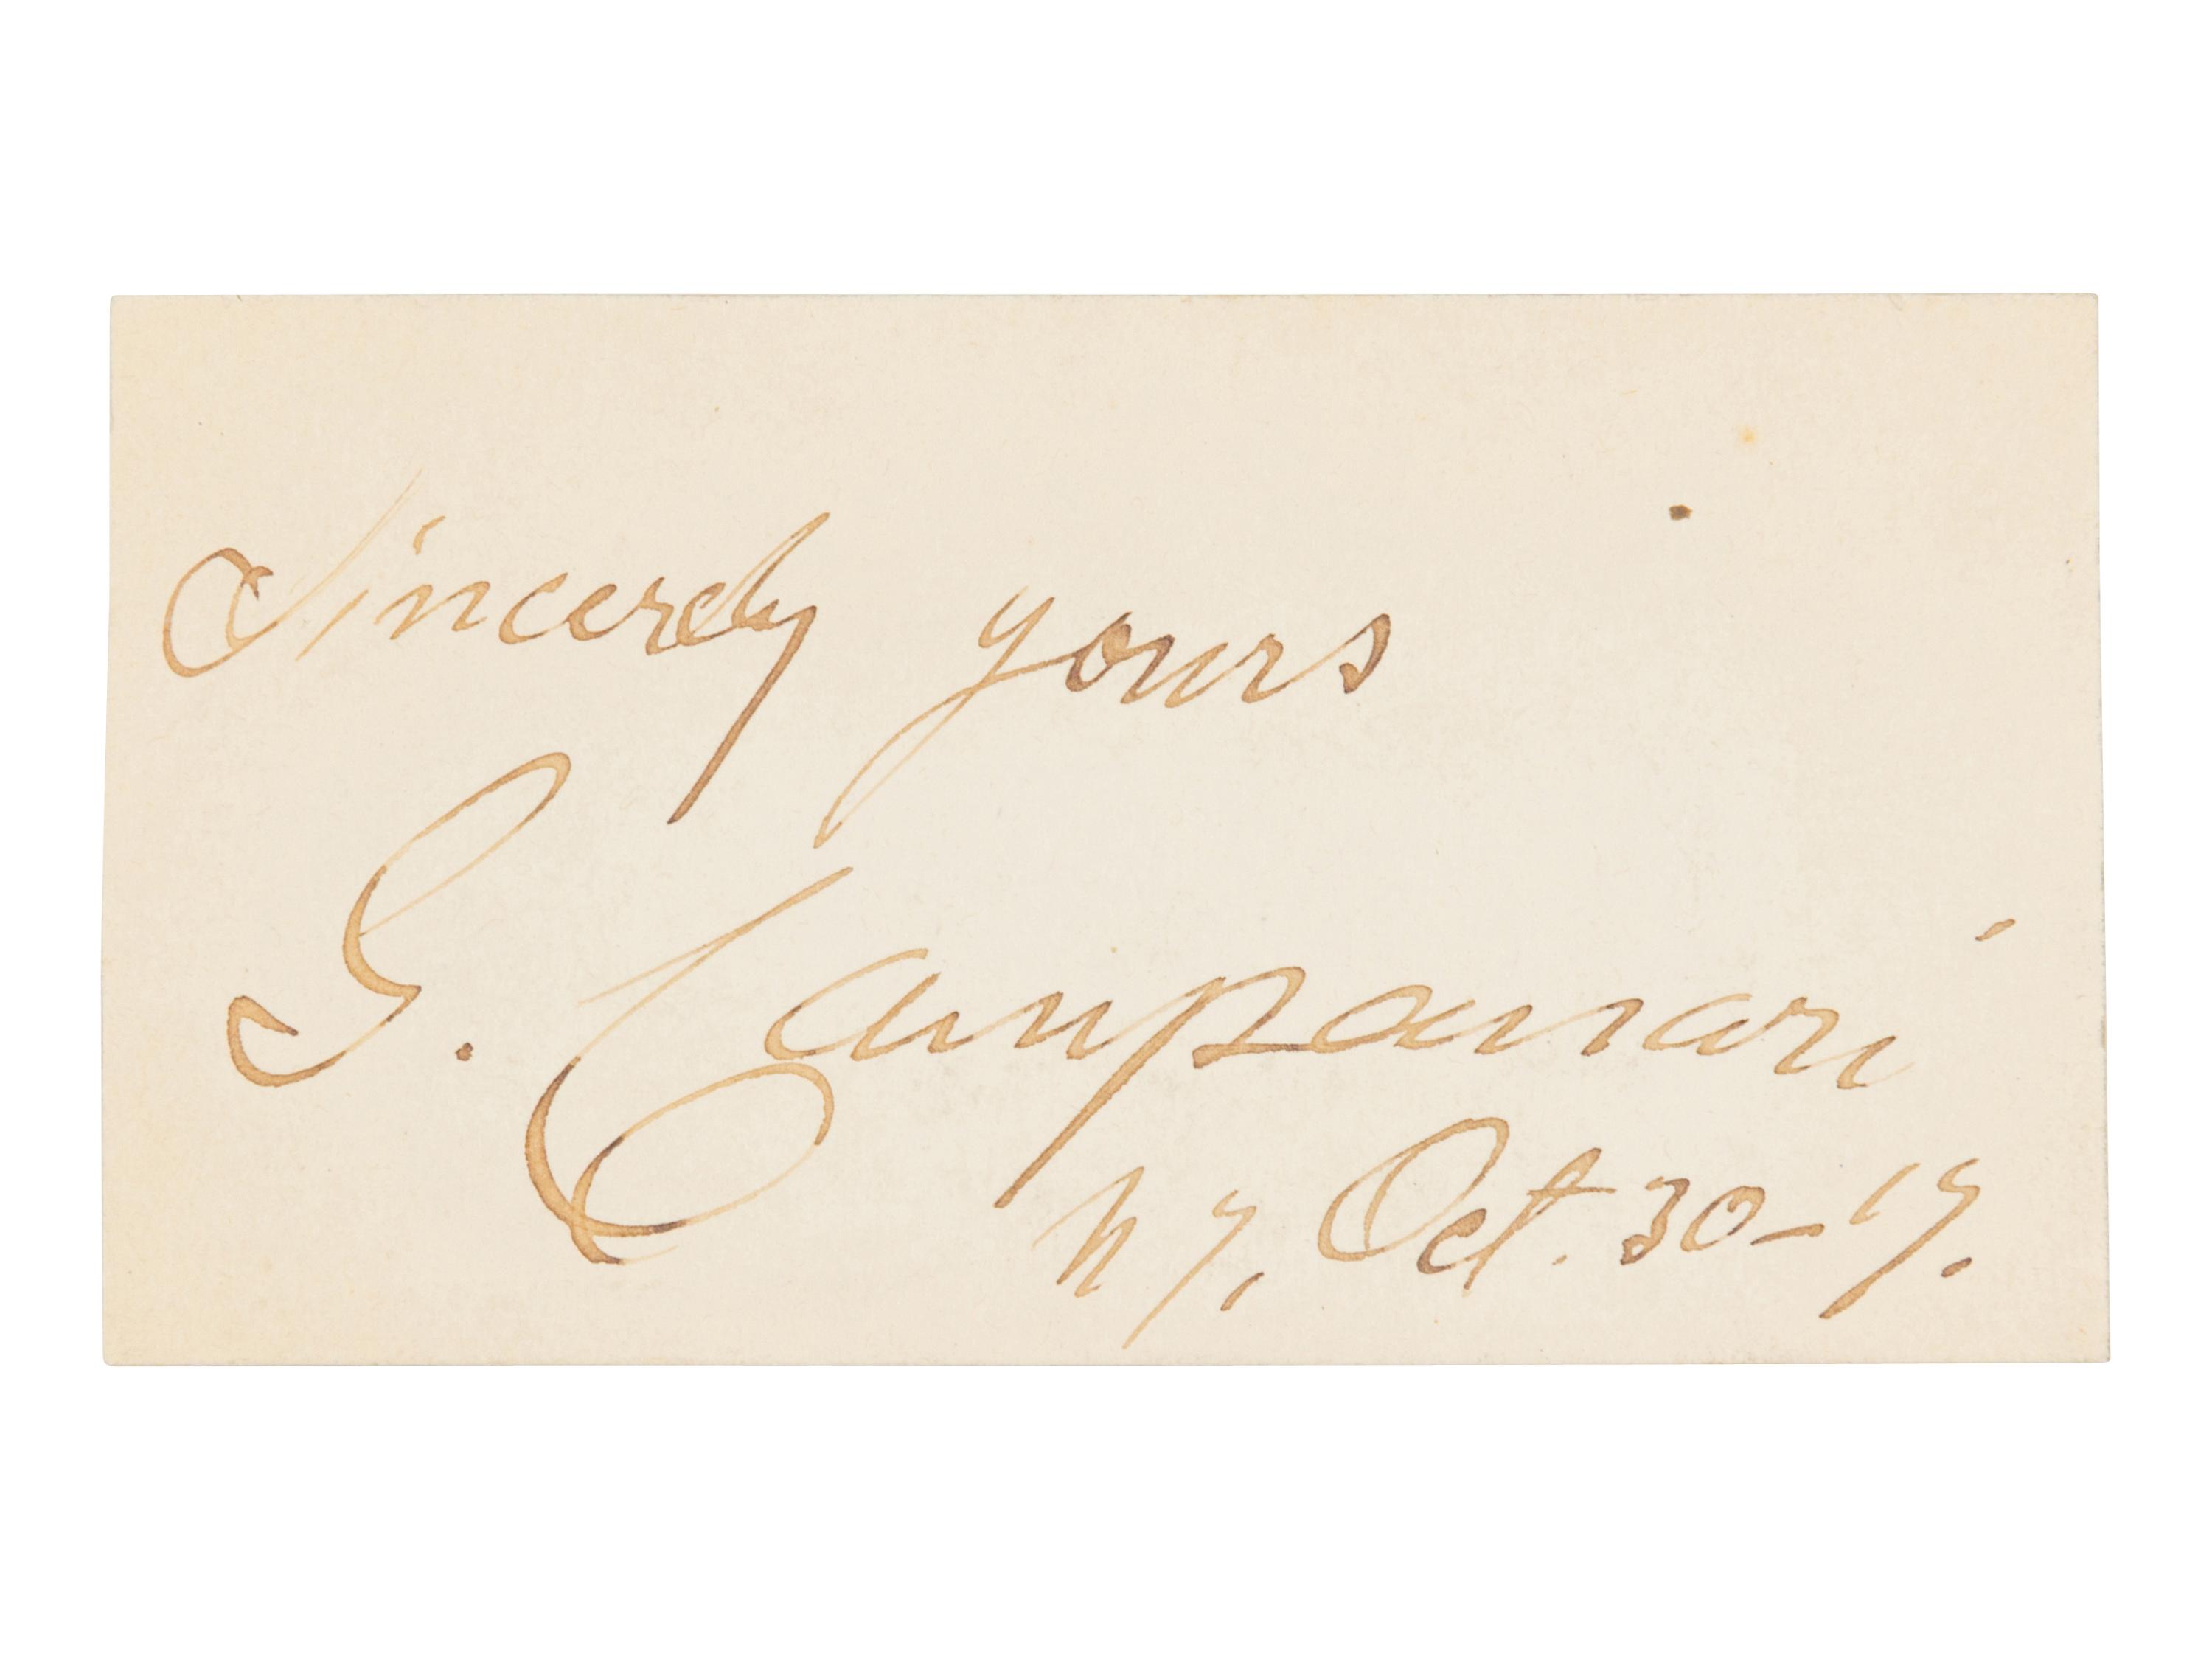 Sincerely yours
G. Campanari
N Y, Oct. 30 - 17.